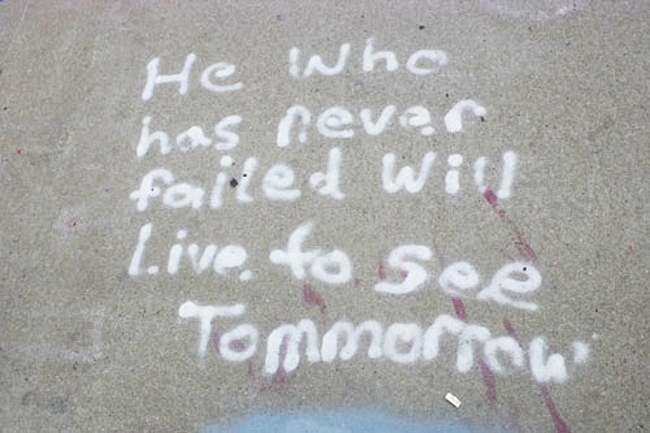 He Who
has never
failed Will
Live. to see
Tommorrow